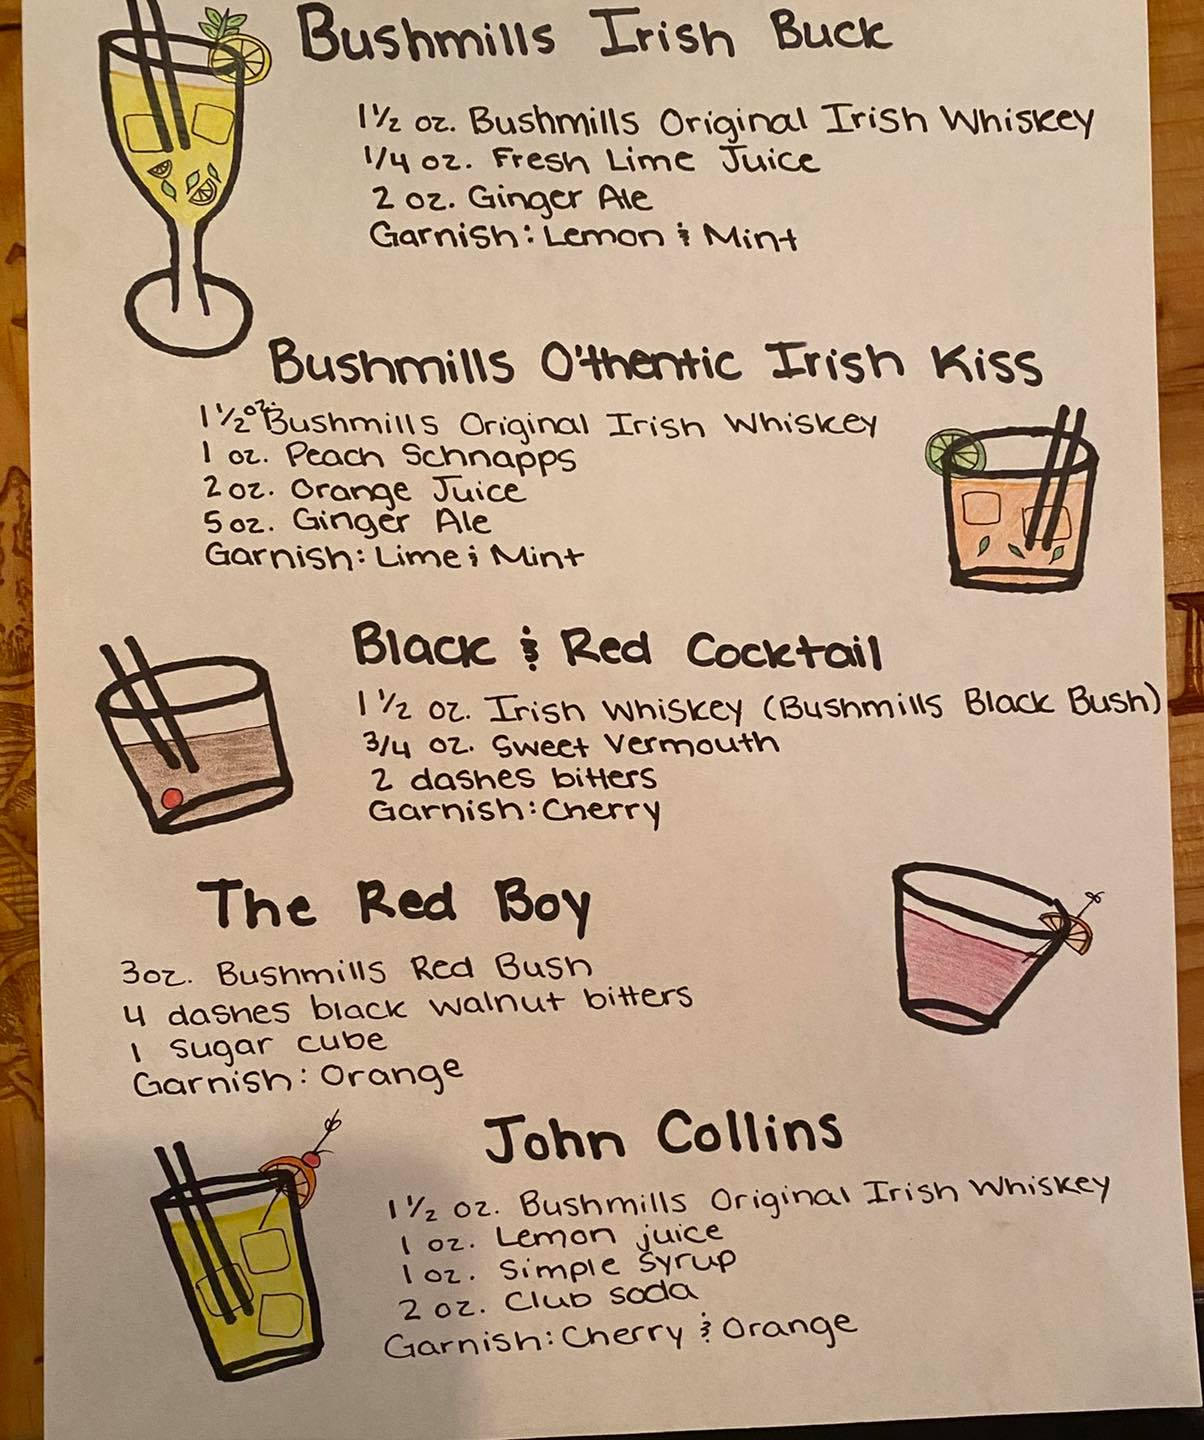 Bushmills Irish Buck
1 1/2 oz. Bushmills Original Irish Whiskey
1/4 oz. Fresh Lime Juice
2 oz. Ginger Ale
Garnish: Lemon & Mint
Bushmills O'thentic Irish Kiss
1 1/2 oz. Bushmills Original Irish Whiskey
1 oz. Peach Schnapps
2 oz. Orange Juice
5 oz. Ginger Ale
Garnish: Lime & Mint
Black & Red Cocktail
1 1/2 oz. Irish Whiskey (Bushmills Black Bush)
3/4 oz. Sweet Vermouth
2 dashes bitters
Garnish: Cherry
The Red Boy
3oz. Bushmills Red Bush
4 dashes black walnut bitters
1 sugar cube
Garnish: Orange
John Collins
1 1/2 oz. Bushmills Original Irish Whiskey
1 oz. Lemon juice
1 oz. Simple Syrup
2 oz. Club soda
Garnish: Cherry & Orange